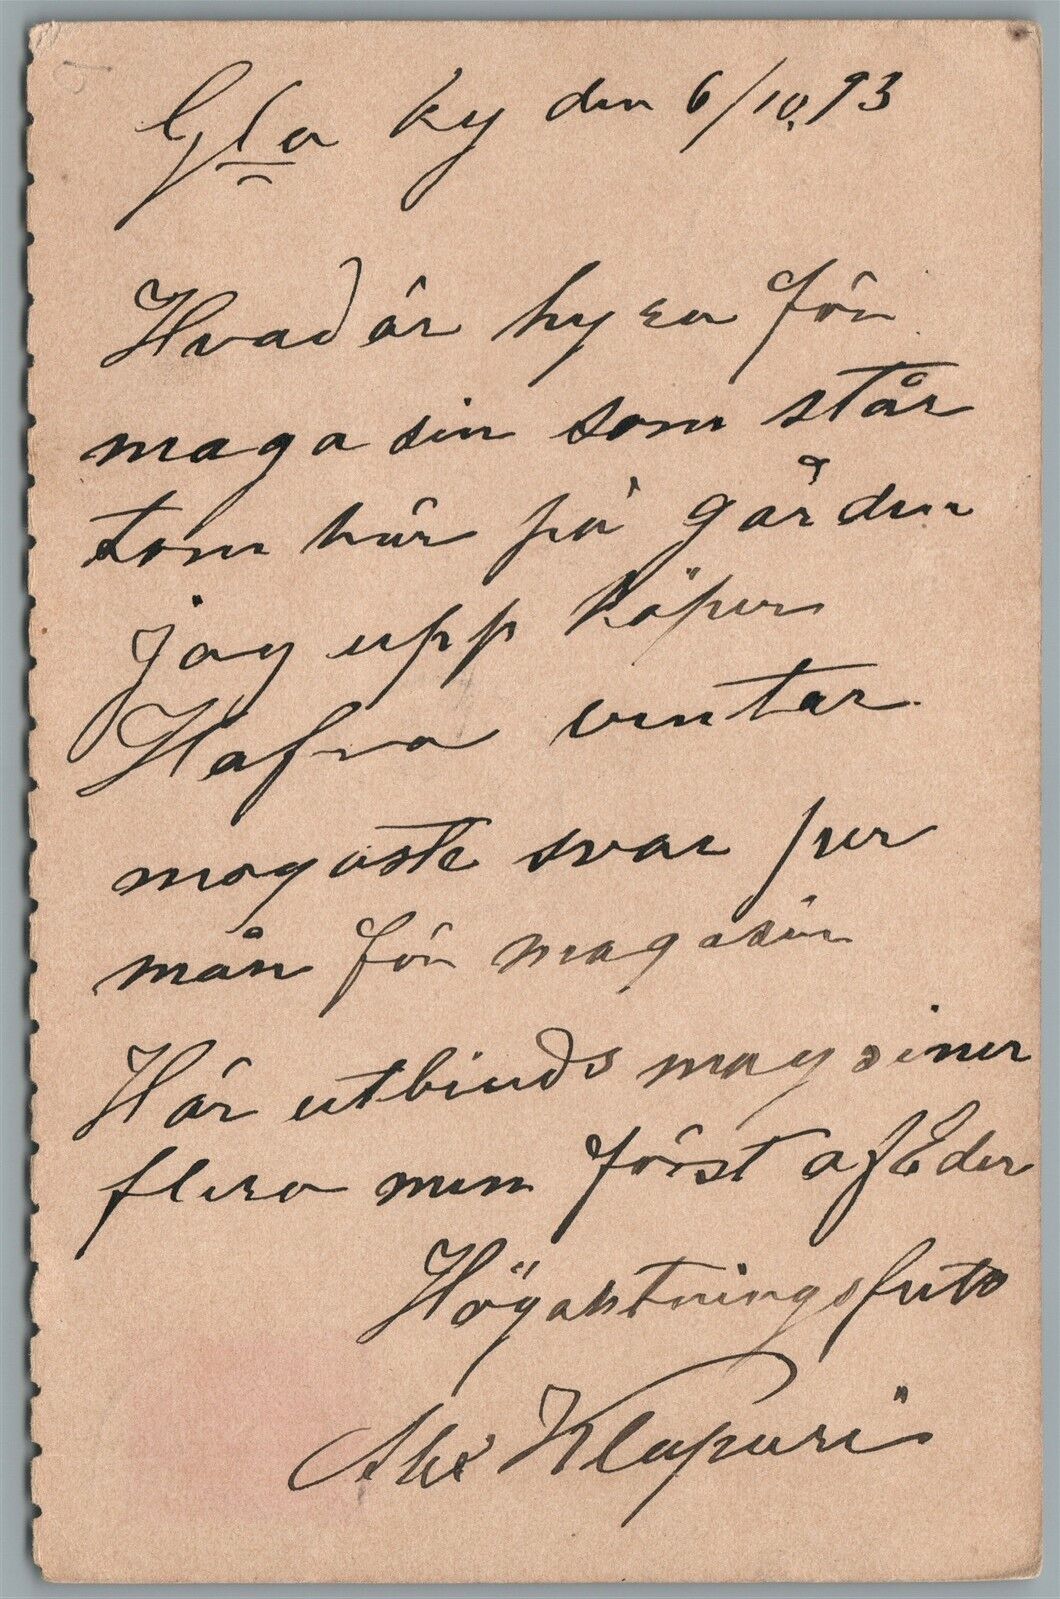 Gla ky den 6/10.93
Hvad är hyra för
magasin som står
tom här på gården
jag upp köper
Hafra vintar
mogaste svar per
mån för magasin
Här utbiuds magasiner
flera men först af Eder
Högaktningsfullt
Alex Klapuri